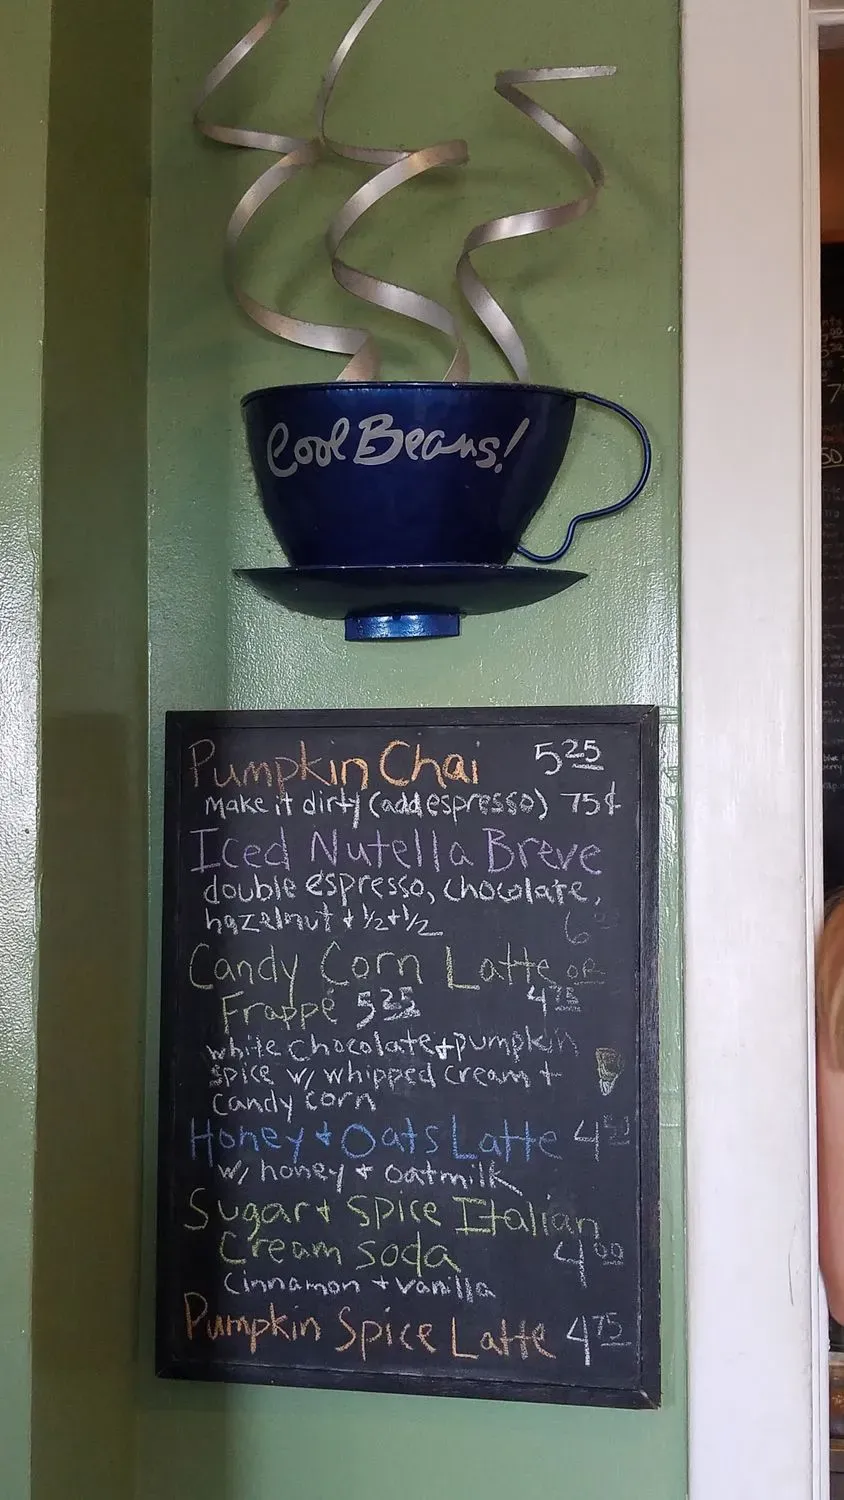 Cool Beans!
Pumpkin Chai 5.25
make it dirty (add espresso) 75¢
Iced Nutella Breve
double espresso, chocolate,
hazelnut + 1/2 + 1/2 6
Candy Corn Latte or
Frappé 5.25 4.75
white chocolate + pumpkin
spice w/ whipped cream +
candy corn
Honey + Oats Latte 4.50
w/ honey + oatmilk
Sugar + Spice Italian
Cream Soda 4.00
cinnamon + vanilla
Pumpkin Spice Latte 4.75